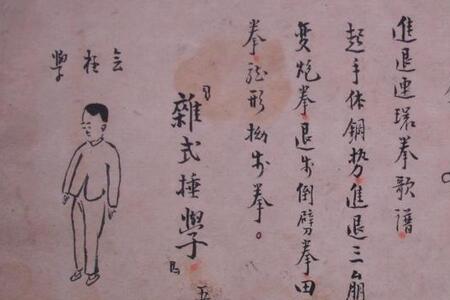 進退連環拳歌譜
起手休鋼势進退三崩
变炮拳退步倒劈拳由
拳形拗步拳。
雜式捶學
五
學